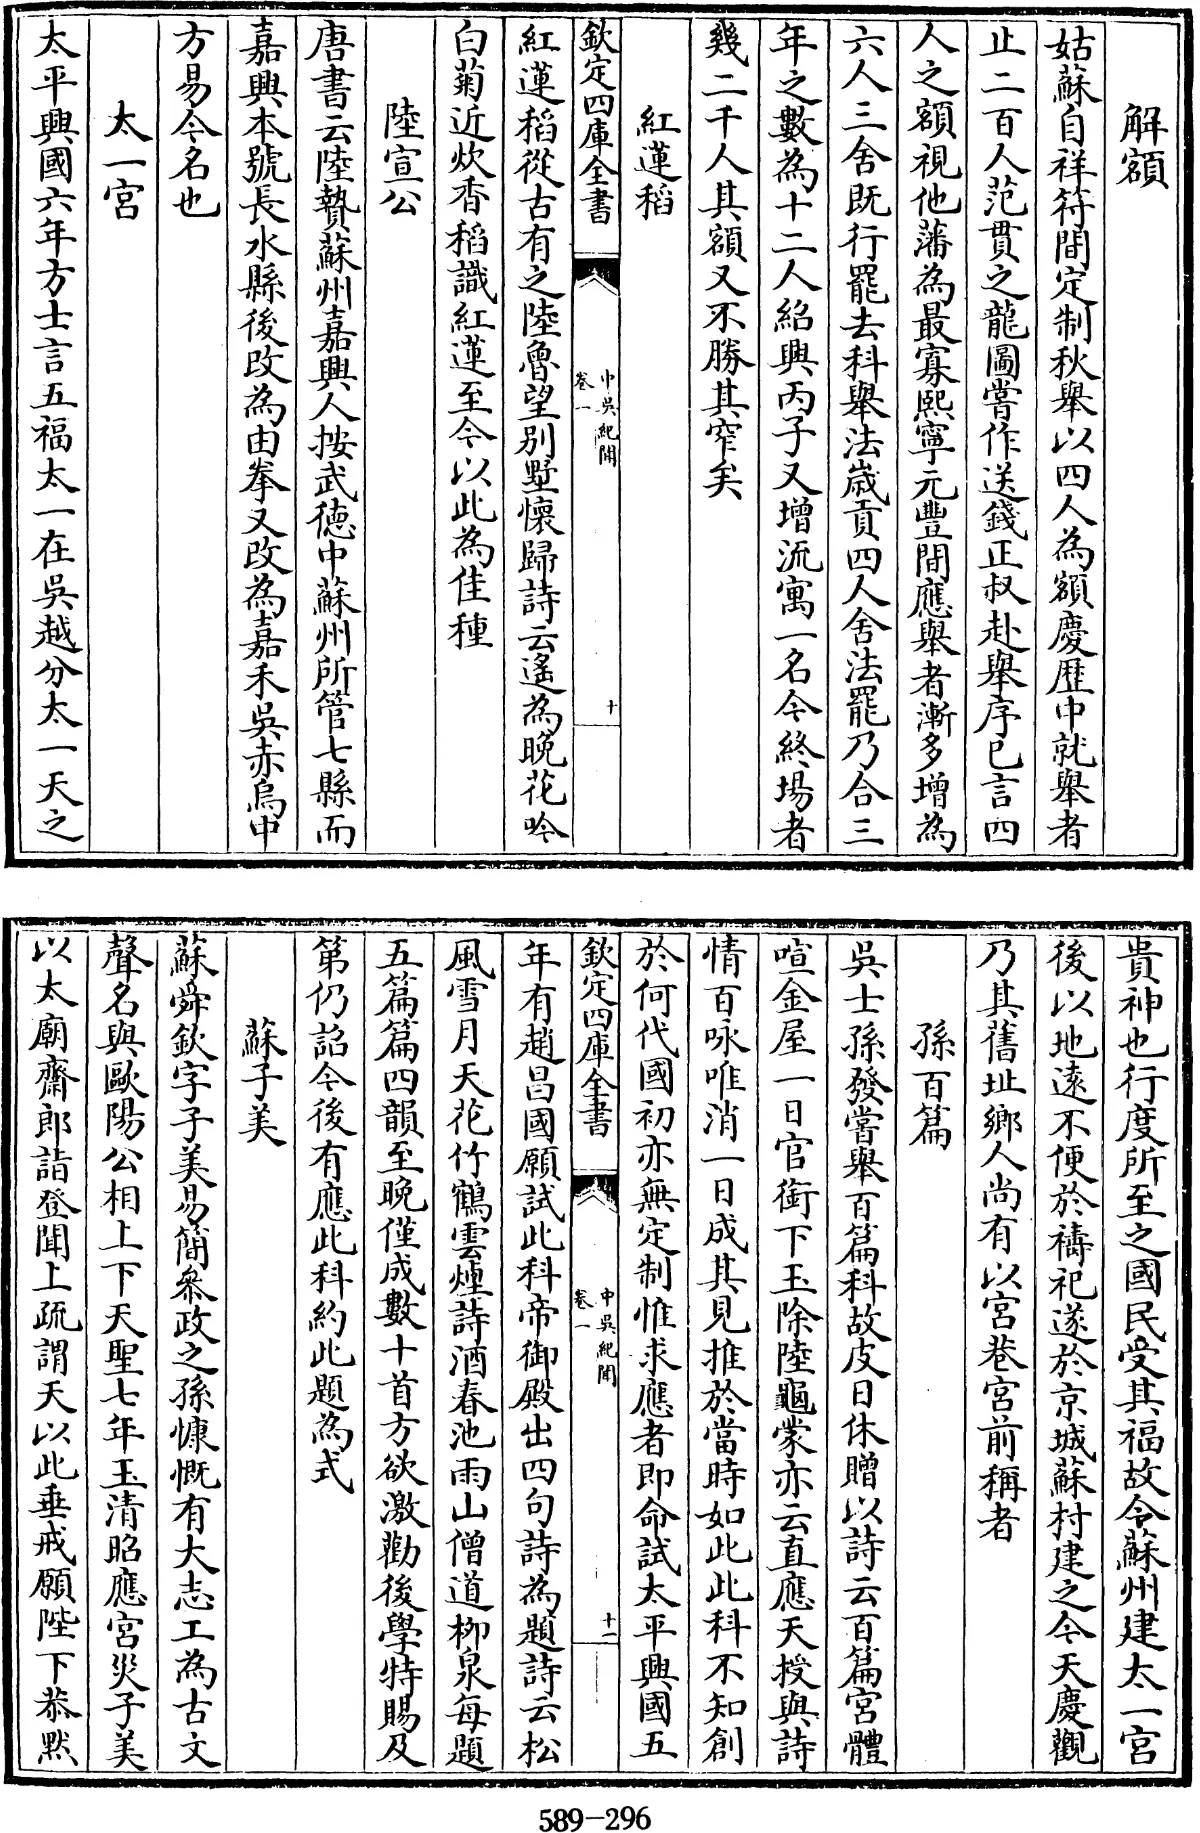 解額
姑蘇自祥符間定制秋舉以四人為額慶歷中就舉者
止二百人范貫之龍圖嘗作送錢正叔赴舉序已言四
人之額視他藩為最寡熙寧元豐間應舉者漸多增為
六人三舍既行罷去科舉法歲貢四人舍法罷乃合三
年之數為十二人紹興丙子又增流寓一名今終場者
幾二千人其額又不勝其窄矣
紅蓮稻
欽定四庫全書
中吳紀聞
卷一
十
紅蓮稻從古有之陸魯望別墅懷歸詩云遙為晚花吟
白菊近炊香稻識紅蓮至今以此為佳種
陸宣公
唐書云陸贄蘇州嘉興人按武德中蘇州所管七縣而
嘉興本號長水縣後改為由拳又改為嘉禾吳赤烏中
方易今名也
太一宮
太平興國六年方士言五福太一在吳越分太一天之
貴神也行度所至之國民受其福故令蘇州建太一宮
後以地遠不便於禱祀遂於京城蘇村建之今天慶觀
乃其舊址鄉人尚有以宮巷宮前稱者
孫百篇
吳士孫發嘗舉百篇科故皮日休贈以詩云百篇宮體
喧金屋一日官銜下玉除陸龜蒙亦云直應天授與詩
情百咏唯消一日成其見推於當時如此此科不知創
於何代國初亦無定制惟求應者即命試太平興國五
欽定四庫全書
中吳紀聞
卷一
十一
年有趙昌國願試此科帝御殿出四句詩為題詩云松
風雪月天花竹鶴雲煙詩酒春池雨山僧道柳泉每題
五篇篇四韻至晚僅成數十首方欲激勸後學特賜及
第仍詔今後有應此科約此題為式
蘇子美
蘇舜欽字子美易簡叅政之孫慷慨有大志工為古文
聲名與歐陽公相上下天聖七年玉清昭應宮災子美
以太廟齋郎詣登聞上疏謂天以此垂戒願陛下恭默
589-296